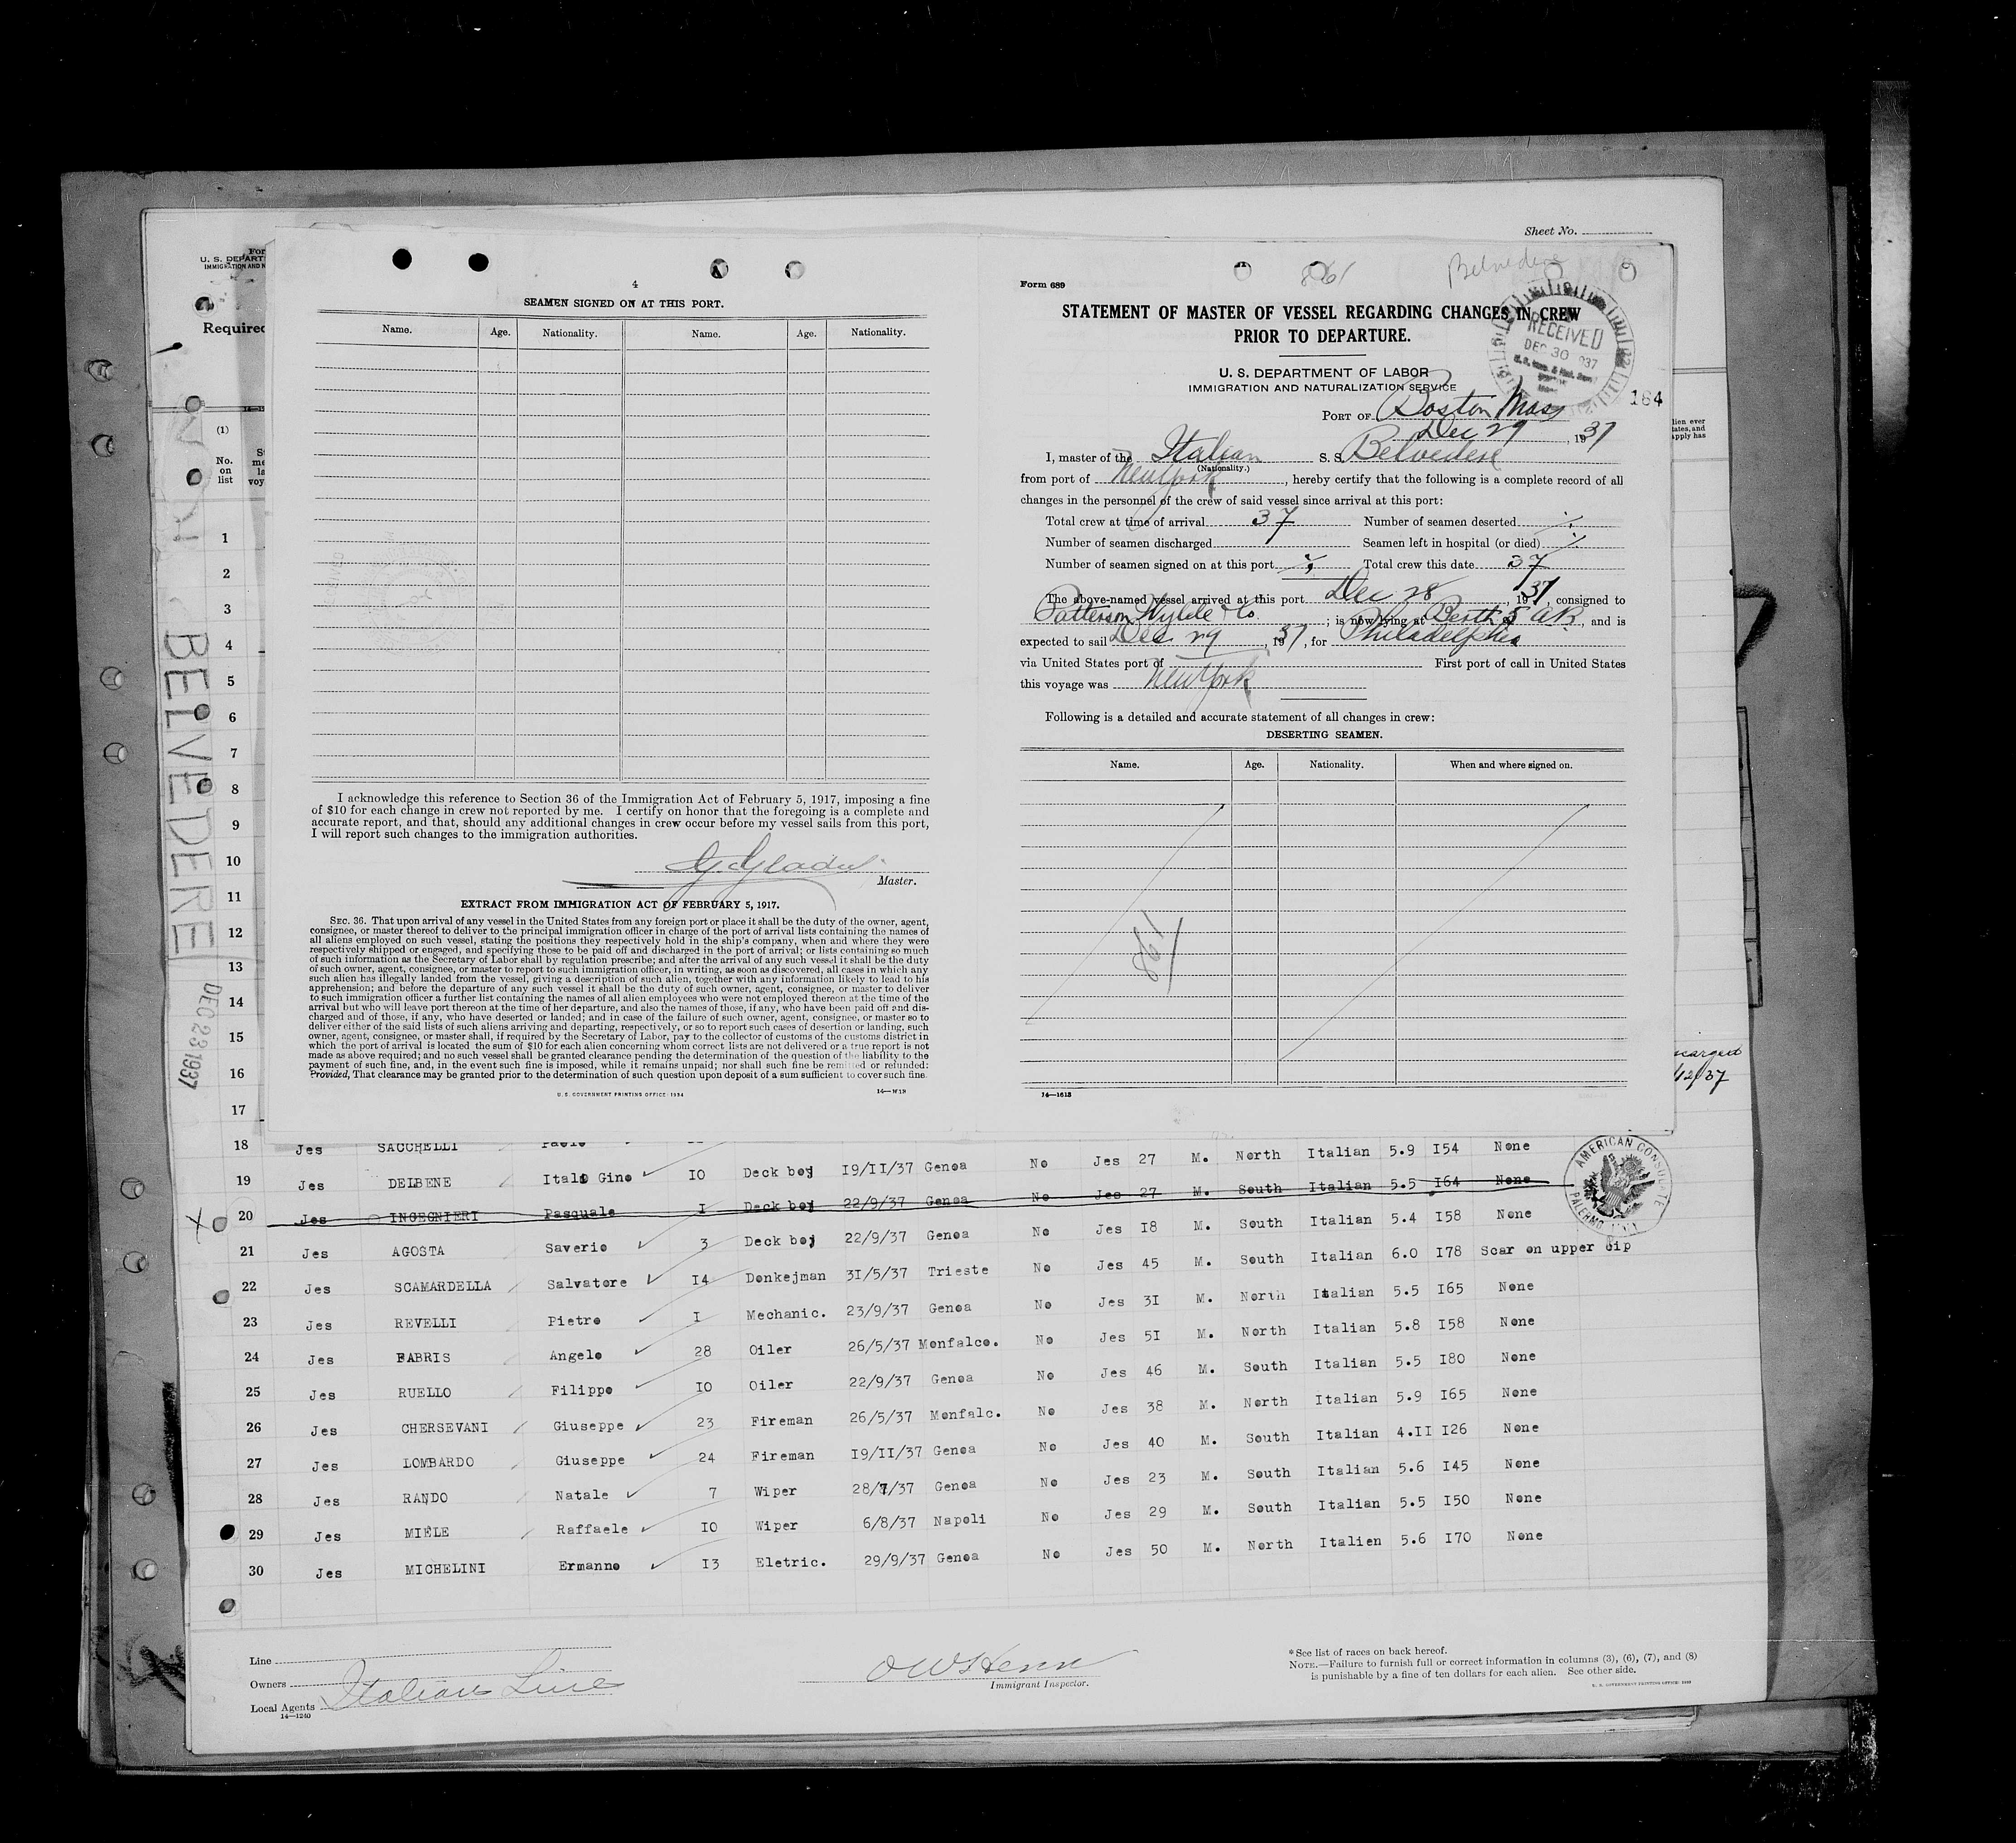 Sheet No.
For
U. S. DEPART
IMMIGRATION AND N
Required
(1)
No.
on
list
BELVEDERE
DEC 23 1937
4
SEAMEN SIGNED ON AT THIS PORT.
Name. Age. Nationality. Name. Age. Nationality.
I acknowledge this reference to Section 36 of the Immigration Act of February 5, 1917, imposing a fine
of $10 for each change in crew not reported by me. I certify on honor that the foregoing is a complete and
accurate report, and that, should any additional changes in crew occur before my vessel sails from this port,
I will report such changes to the immigration authorities.
Master.
EXTRACT FROM IMMIGRATION ACT OF FEBRUARY 5, 1917.
SEC. 36. That upon arrival of any vessel in the United States from any foreign port or place it shall be the duty of the owner, agent,
consignee, or master thereof to deliver to the principal immigration officer in charge of the port of arrival lists containing the names of
all aliens employed on such vessel, stating the positions they respectively hold in the ship's company, when and where they were
respectively shipped or engaged, and specifying those to be paid off and discharged in the port of arrival; or lists containing so much
of such information as the Secretary of Labor shall by regulation prescribe; and after the arrival of any such vessel it shall be the duty
of such owner, agent, consignee, or master to report to such immigration officer, in writing, as soon as discovered, all cases in which any
such alien has illegally landed from the vessel, giving a description of such alien, together with any information likely to lead to his
apprehension; and before the departure of any such vessel it shall be the duty of such owner, agent, consignee, or master to deliver
to such immigration officer a further list containing the names of all alien employees who were not employed thereon at the time of the
arrival but who will leave port thereon at the time of her departure, and also the names of those, if any, who have been paid off and dis-
charged and of those, if any, who have deserted or landed; and in case of the failure of such owner, agent, consignee, or master so to
deliver either of the said lists of such aliens arriving and departing, respectively, or so to report such cases of desertion or landing, such
owner, agent, consignee, or master shall, if required by the Secretary of Labor, pay to the collector of customs of the customs district in
which the port of arrival is located the sum of $10 for each alien concerning whom correct lists are not delivered or a true report is not
made as above required; and no such vessel shall be granted clearance pending the determination of the question of the liability to the
payment of such fine, and, in the event such fine is imposed, while it remains unpaid; nor shall such fine be remitted or refunded:
Provided, That clearance may be granted prior to the determination of such question upon deposit of a sum sufficient to cover such fine.
U. S. GOVERNMENT PRINTING OFFICE: 1934
Form 689
861
Belvedere
STATEMENT OF MASTER OF VESSEL REGARDING CHANGES IN CREW
PRIOR TO DEPARTURE.
RECEIVED
DEC 30 1937
U. S. DEPARTMENT OF LABOR
IMMIGRATION AND NATURALIZATION SERVICE
164
PORT OF Boston Mass
Dec 29, 1937
I, master of the Italian S. S. Belvedere
(Nationality.)
from port of New York, hereby certify that the following is a complete record of all
changes in the personnel of the crew of said vessel since arrival at this port:
Total crew at time of arrival 37 Number of seamen deserted
Number of seamen discharged Seamen left in hospital (or died)
Number of seamen signed on at this port Total crew this date 37
The above-named vessel arrived at this port Dec 28, 1937, consigned to
Patterson Wylde & Co; is now lying at Berth 5 AB, and is
expected to sail Dec 29, 1937, for Philadelphia
via United States port of First port of call in United States
this voyage was New York
Following is a detailed and accurate statement of all changes in crew:
DESERTING SEAMEN.
Name. Age. Nationality. When and where signed on.
198
14—1613
lien ever
tates, and
apply has
/12/37
1
2
3
4
5
6
7
8
9
10
11
12
13
14
15
16
17
18 Jes SACCHELLI Paolo 5.9 I54 None
19 Jes DELBENE Italo Gino IO Deck boj I9/II/37 Genoa No Jes 27 M. North Italian 5.9 I54 None
20 Jes INGEGNIERI Pasquale I Deck boj 22/9/37 Genoa No Jes 27 M. South Italian 5.5 I64 None
21 Jes AGOSTA Saverio 3 Deck boj 22/9/37 Genoa No Jes I8 M. South Italian 5.4 I58 None
22 Jes SCAMARDELLA Salvatore I4 Donkejman 3I/5/37 Trieste No Jes 45 M. South Italian 6.0 I78 Scar on upper lip
23 Jes REVELLI Pietro I Mechanic. 23/9/37 Genoa No Jes 3I M. North Italian 5.5 I65 None
24 Jes FABRIS Angelo 28 Oiler 26/5/37 Monfalco. No Jes 5I M. North Italian 5.8 I58 None
25 Jes RUELLO Filippo IO Oiler 22/9/37 Genoa No Jes 46 M. South Italian 5.5 I80 None
26 Jes CHERSEVANI Giuseppe 23 Fireman 26/5/37 Monfalc. No Jes 38 M. North Italian 5.9 I65 None
27 Jes LOMBARDO Giuseppe 24 Fireman I9/II/37 Genoa No Jes 40 M. South Italian 4.II I26 None
28 Jes RANDO Natale 7 Wiper 28/7/37 Genoa No Jes 23 M. South Italian 5.6 I45 None
29 Jes MIELE Raffaele IO Wiper 6/8/37 Napoli No Jes 29 M. South Italian 5.5 I50 None
30 Jes MICHELINI Ermanno I3 Eletric. 29/9/37 Genoa No Jes 50 M. North Italien 5.6 I70 None
AMERICAN CONSULATE
PALERMO, ITALY
Line
Owners
Local Agents Italian Line
14—1240
Immigrant Inspector.
* See list of races on back hereof.
NOTE.—Failure to furnish full or correct information in columns (3), (6), (7), and (8)
is punishable by a fine of ten dollars for each alien. See other side.